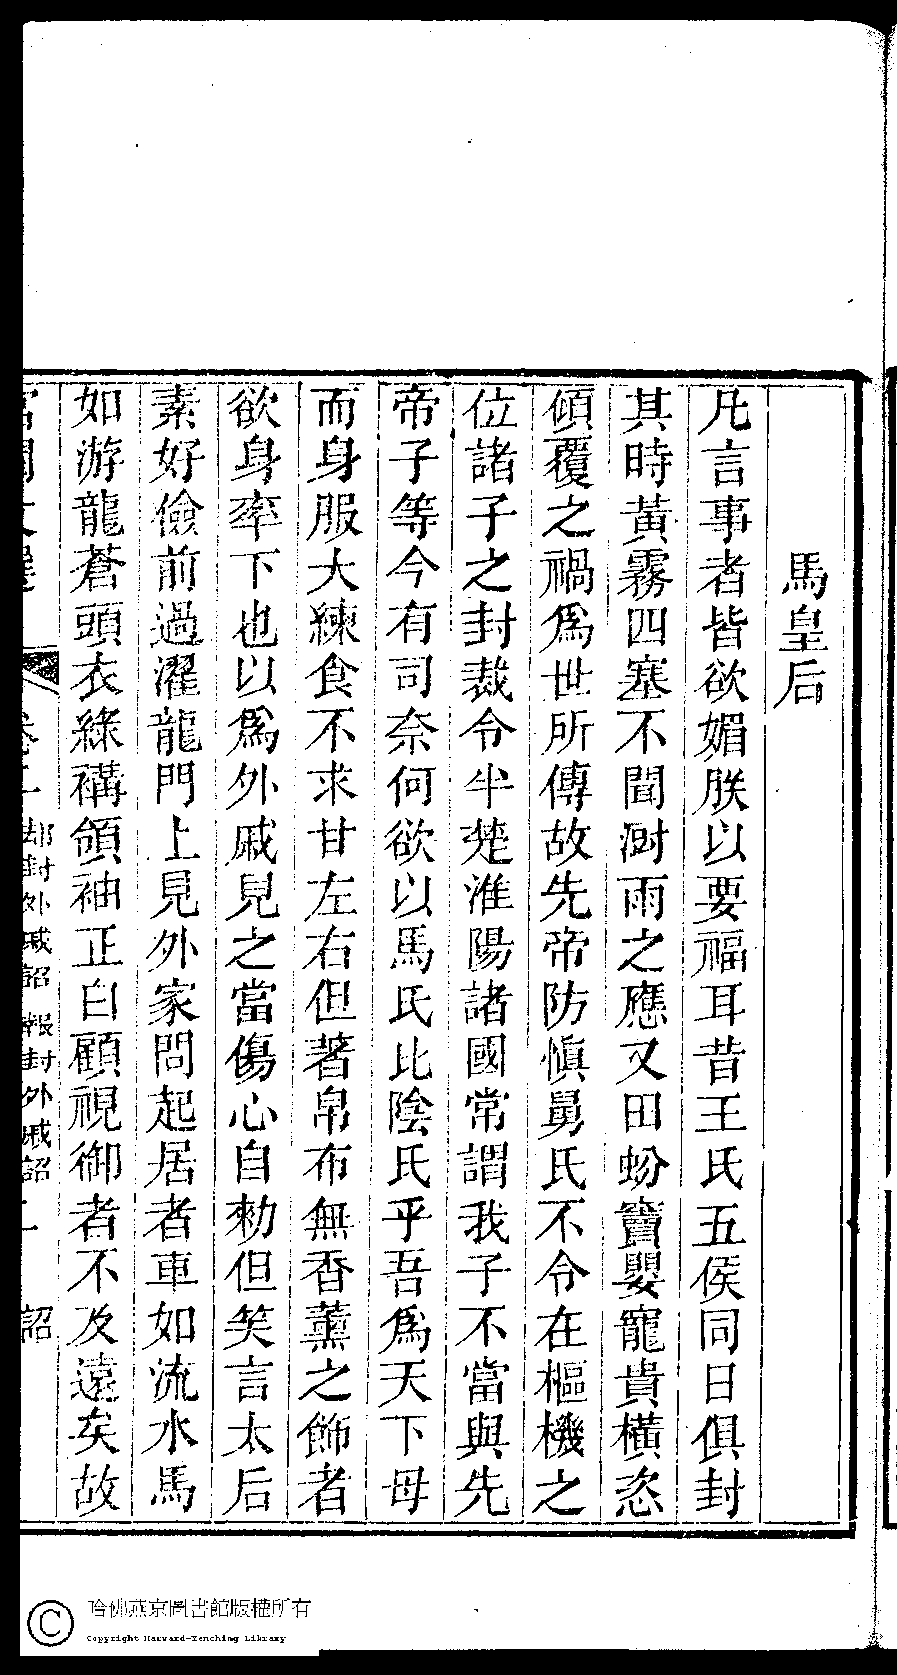 馬皇后
凡言事者皆欲媚朕以要福耳昔王氏五侯同日俱封
其時黃霧四塞不聞澍雨之應又田蚡竇嬰寵貴橫恣
傾覆之禍爲世所傳故先帝防慎舅氏不令在樞機之
位諸子之封裁令半楚淮陽諸國常謂我子不當與先
帝子等今有司奈何欲以馬氏比陰氏乎吾爲天下母
而身服大練食不求甘左右但著帛布無香薰之飾者
欲身率下也以爲外戚見之當傷心自勑但笑言太后
素好儉前過濯龍門上見外家問起居者車如流水馬
如游龍蒼頭衣綠褠領袖正白顧視御者不及遠矣故
卻封外戚詔 報封外戚詔 詔
哈佛燕京圖書館版權所有
Copyright Harvard-Yenching Library